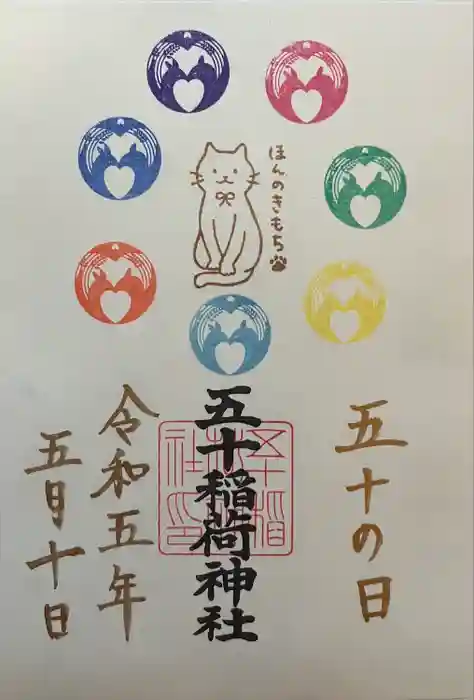 ほんのきもち
五十の日
五十稲荷神社
令和五年
五月十日